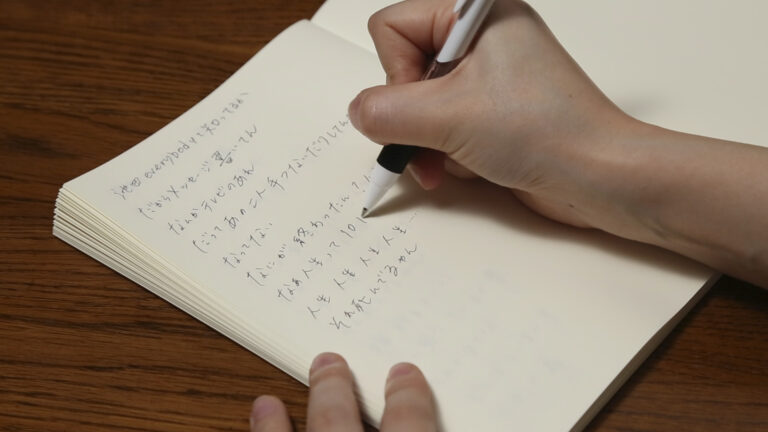 池田 everybodyて知ってるか
だからメッセージ 置いてん
なんかテレビのあれ
だってあの二人 手つないだりして
なってない
なにが 終わったんて
なあ 人生って 10
人生 人生 人生 人生...
それ死んでるやん